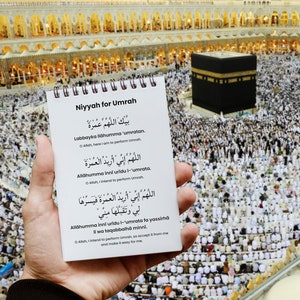 Niyyah for Umrah
بَيْكَ اللَّهُمَّ عُمْرَةً
Labbayka llāhumma 'umratan.
O Allah, here I am to perform Umrah.
اللَّهُمَّ إِنِّي أُرِيدُ الْعُمْرَةَ
Allāhumma innī urīdu l-'umrata
O Allah, I intend to perform Umrah.
اللَّهُمَّ إِنِّي أُرِيدُ الْعُمْرَةَ فَيَسِّرْهَا
لِي وَتَقَبَّلْهَا مِنِّي
Allāhumma innī urīdu l-'umrata fa yassirhā
lī wa taqabbalhā minnī.
O Allah, I intend to perform Umrah, so accept it from me
and make it easy for me.